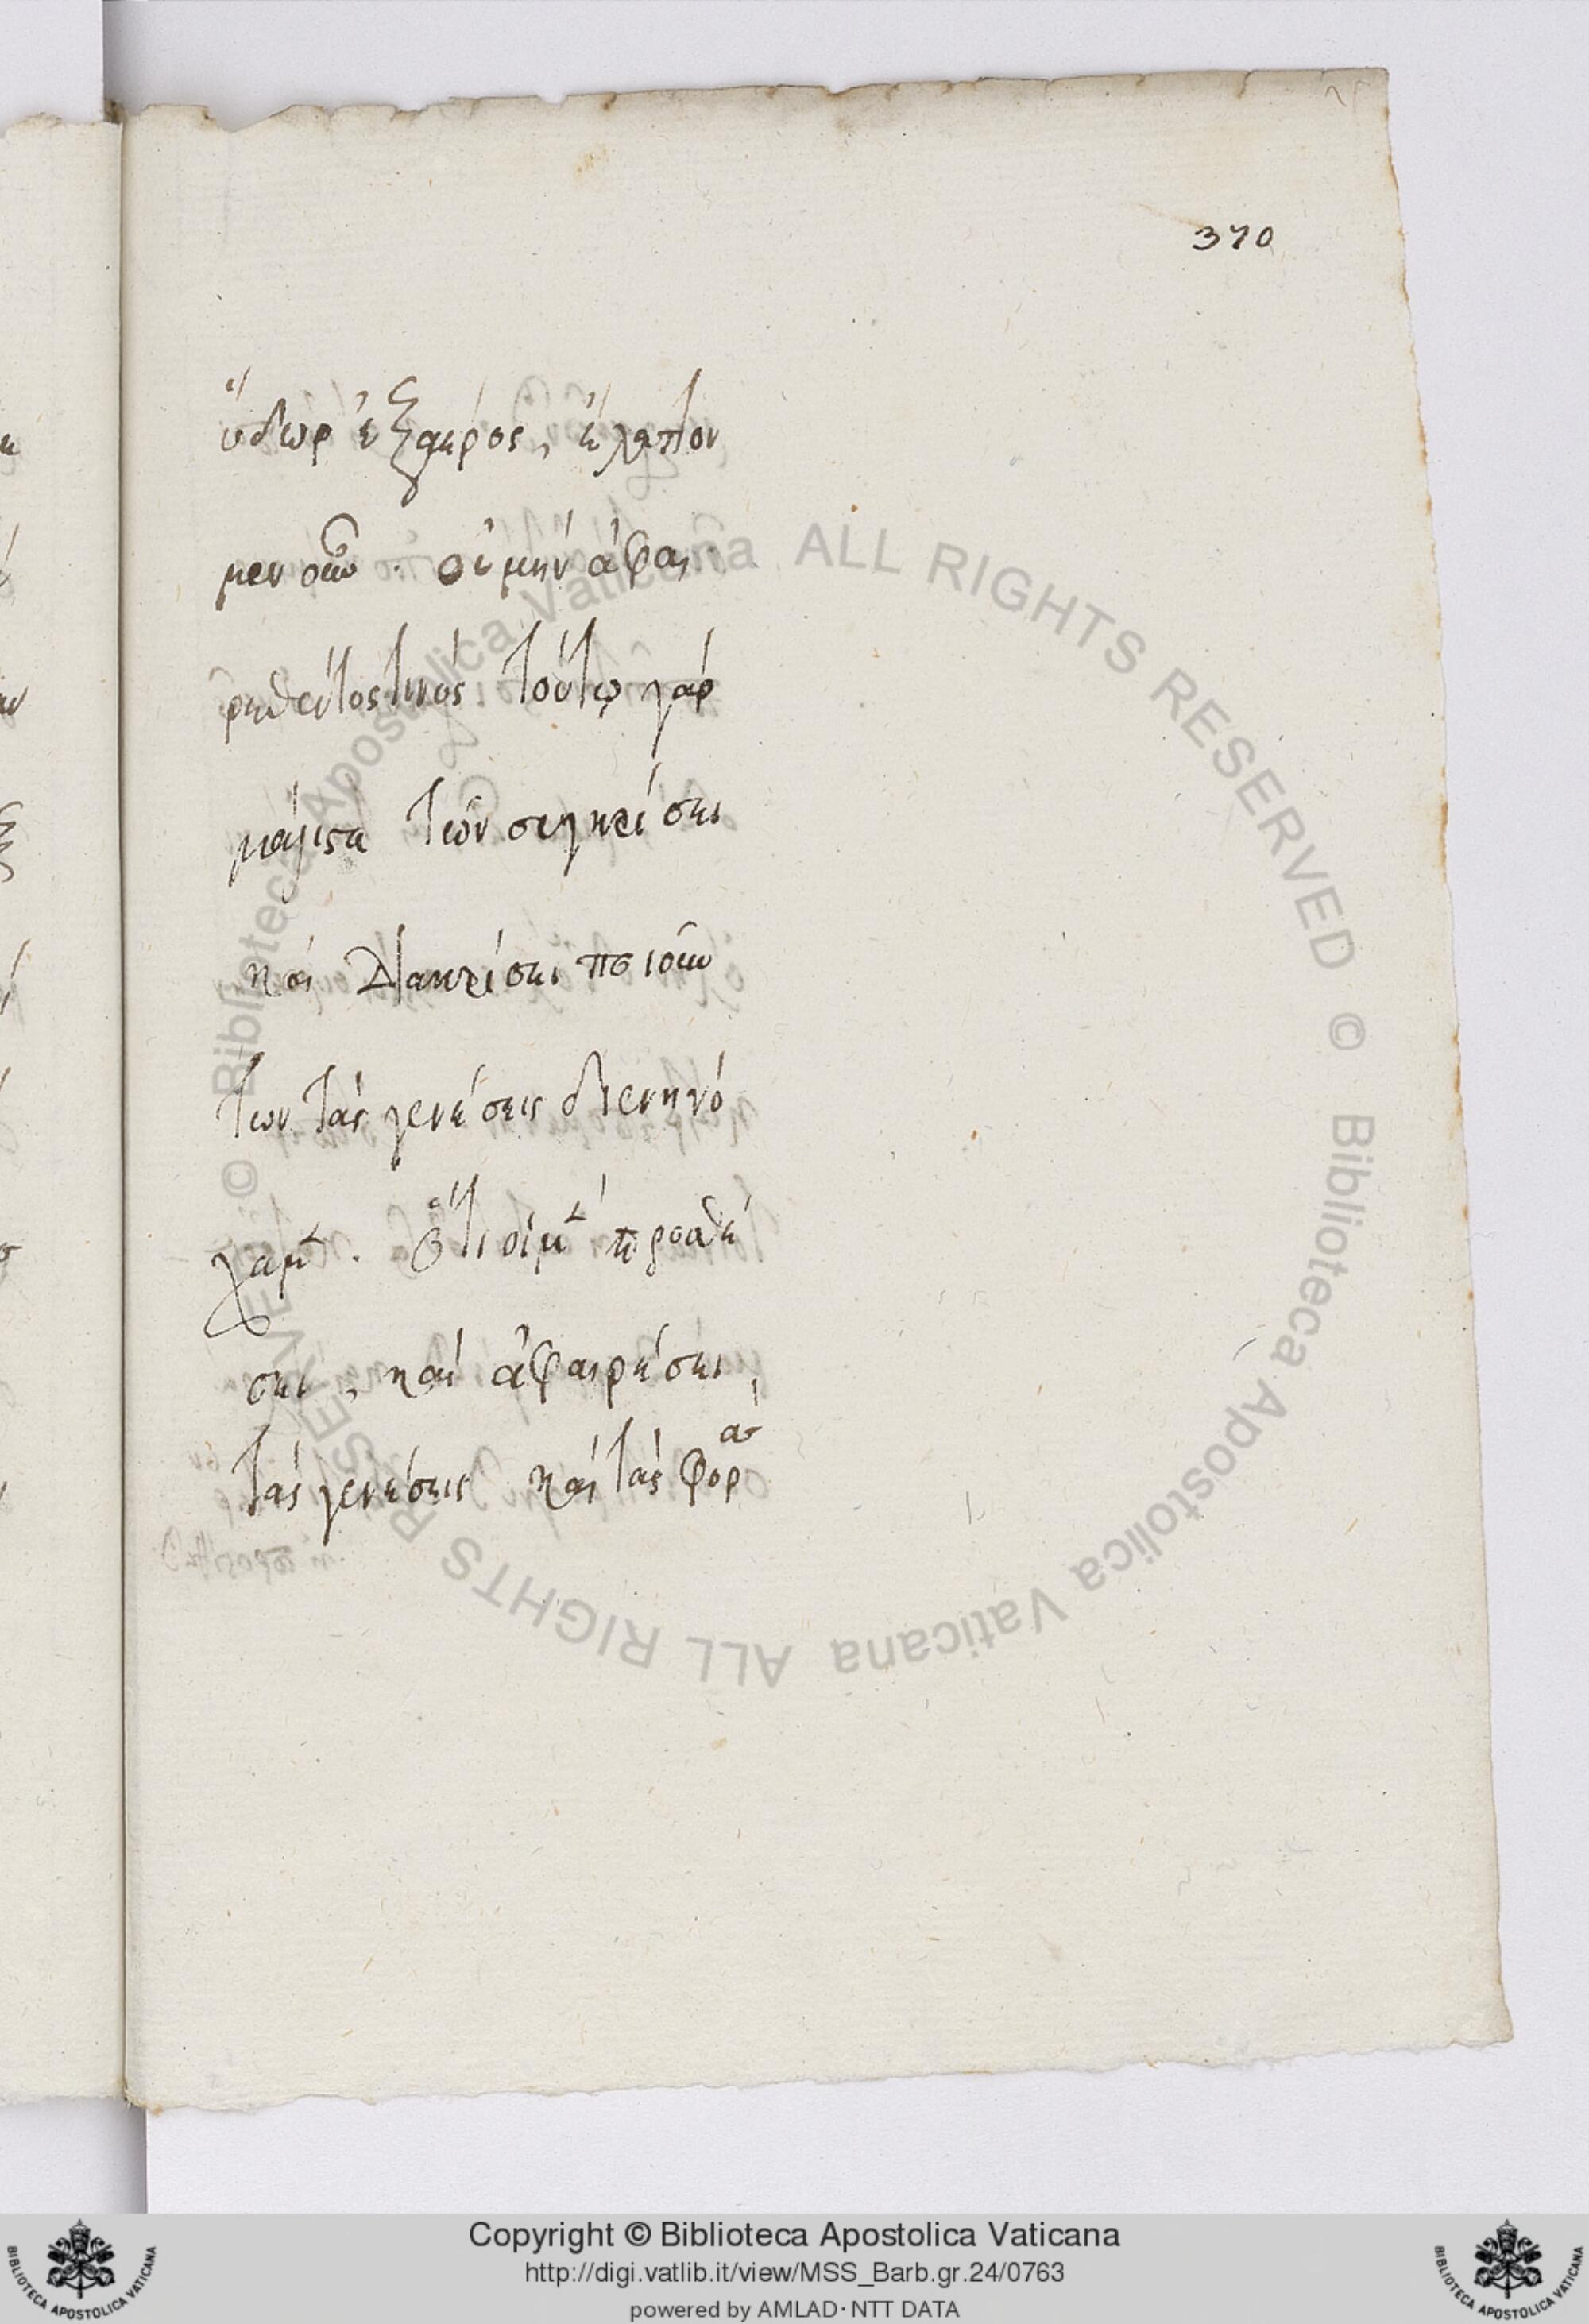 370
ὕδωρ ἐξ ἀέρος, ἔλαττον
μεν οὖν. οὐ μὴν ἀφαι
ρεθέντος τινός. τούτῳ γὰρ
μάλιστα τῶν συγκρίσει
καὶ διακρίσει ποιούν
των τὰς γενέσεις διενηνό
χαμεν. ὅτι οἱ μὲν προσθέ
σει, καὶ ἀφαιρέσει,
τὰς γενέσεις καὶ τὰς φορὰς
© Biblioteca Apostolica Vaticana ALL RIGHTS RESERVED © Biblioteca Apostolica Vaticana ALL RIGHTS RESERVED
Copyright © Biblioteca Apostolica Vaticana
http://digi.vatlib.it/view/MSS_Barb.gr.24/0763
powered by AMLAD·NTT DATA
BIBLIOTECA APOSTOLICA VATICANA
BIBLIOTECA APOSTOLICA VATICANA